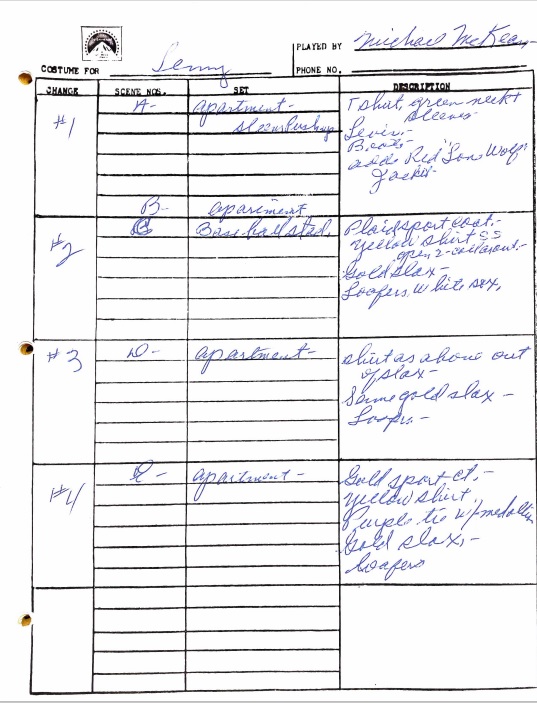 PLAYED BY Michael McKean
COSTUME FOR Lenny
PHONE NO.
CHANGE SCENE NOS. SET DESCRIPTION
#1 A- apartment- T shirt, green neck &
sleeves
Levis-
Boots-
adds Red Lone Wolf
Jacket-
B- apartment
#2 C Baseball stad. Plaid sport coat.-
Yellow shirt SS
open 2-
Gold slax-
Loafers, White sox,
#3 D- apartment- shirt as above out
of slax-
Same gold slax-
Loafers.-
#4 E- apartment- Gold sport ct.-
Yellow shirt,
Purple tie w/medallion
Gold slax,-
Loafers